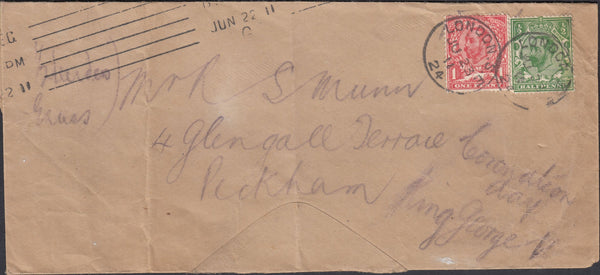 JUN 22 11
2 11
Mr R S Munn
4 Glengall Terrace
Peckham
Grass)
Coronation
day
King George V
LONDON
24
ONE PENNY
LONDON
HALFPENNY